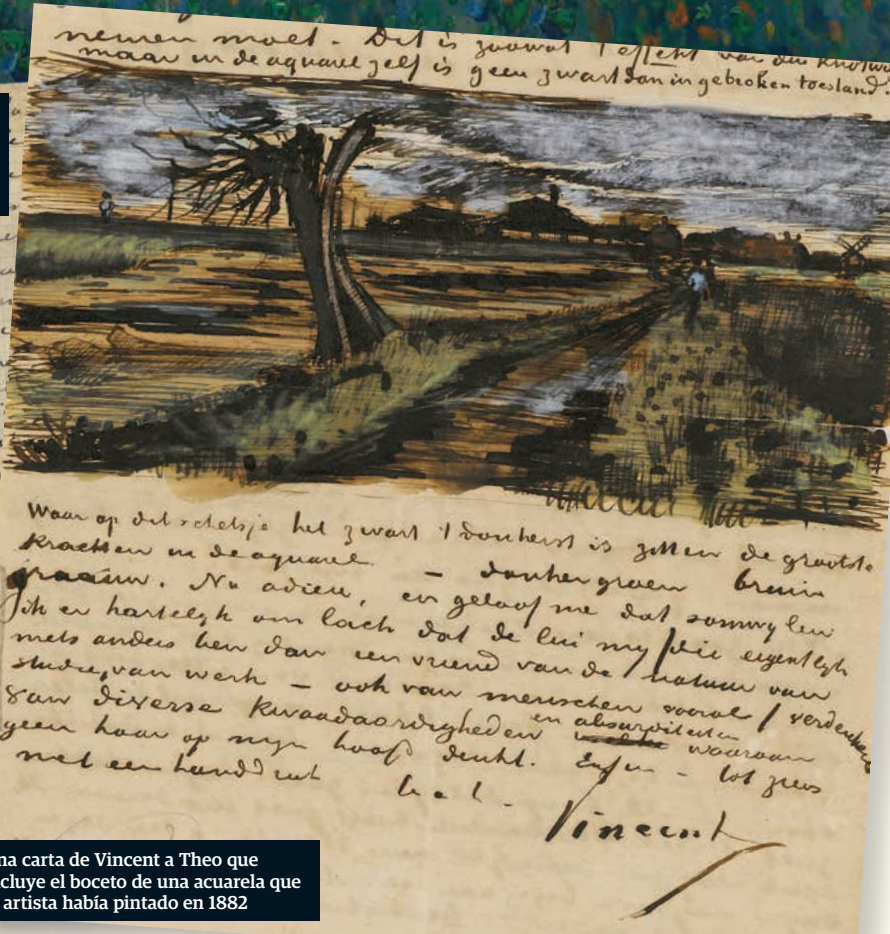 nemen moet – Dit is zoowat 't effekt van den knotwi
maar in de aquarel zelf is geen zwart dan in gebroken toestand.
Waar op dit schetsje het zwart 't donkerst is zitten de grootste
krachten in de aquarel – donkergroen bruin
graauw. Nu adieu, en geloof me dat somwylen
ik er hartelyk om lach dat de lui my /die eigentlyk
niets anders ben dan een vriend van de natuur van
studie, van werk – ook van menschen vooral/ verdenken
van diverse kwaadaardigheden en absurditeiten waaraan
geen haar op myn hoofd denkt. Enfin – tot ziens
met een handdruk
t. à. t.
Vincent
na carta de Vincent a Theo que
cluye el boceto de una acuarela que
artista había pintado en 1882